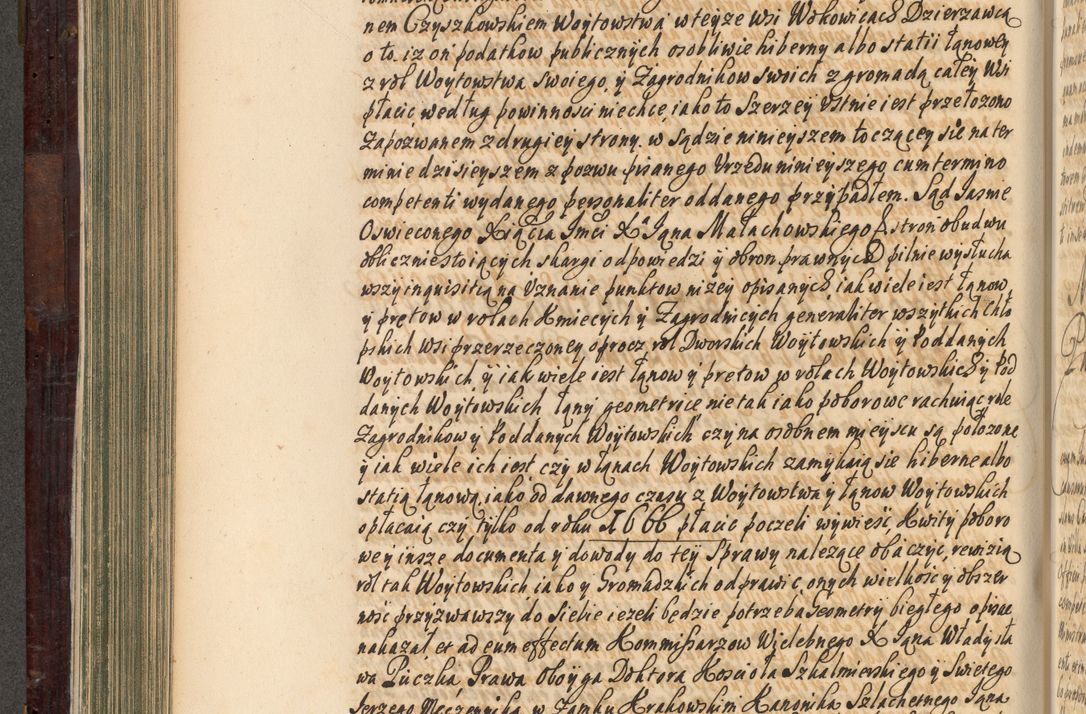 nem Czyszkowskiem Woytowstwa w teyze wsi Wokowicach Dzierzawcą
o to, iz on podatkow publicznych osobliwie hiberny albo statii łąnowey
z rol Woytowstwa swoiego, y Zagrodnikow swoich z gromadą całey Wsi
płacic według powinnosci niechce, iako to Szerzey Ustnie iest przełozono
Zapozwanem z drugiey strony. w Sądzie ninieyszem toczącey się na ter
minie dzisieyszem z pozwu pisanego Urzedu ninieyszego cum termino
competenti wydanego personaliter oddanego przypadłem. Sąd Jasnie
Oswieconego Xiązcia Jmci Xa Jąna Małachowskiego & stron obudwu
obliczniestoiących skargi odpowiedzi y obron prawnych pilnie wysłucha
wszy inquisitią na Uznanie punktow nizey opisanych, iak wiele iest łąnow
y prętow w rolach Kmiecych y Zagrodniczych generaliter wszytkich chło
pskich wsi przerzeczoney oprocz rol Dworskich Woytowskich y Poddanych
Woytowskich, y iak wiele iest łąnow y prętow w rolach Woytowskich y Pod
danych Woytowskich łąny geometrice nie tak iako poborowe rachuiąc, role
Zagrodnikow y Poddanych Woytowskich czy na osobnem mieyscu są połozone
y iak wiele ich iest czy w łąnach Woytowskich zamykaią się hiberne albo
statią łąnową, iako od dawnego czasu z Woytowstwa y łąnow Woytowskich
opłacaią czy tylko od roku 1666 płacic poczeli wywiesć, Kwity poboro
we y insze documenta y dowody do tey Sprawy nalezące obaczyc, rewizią
rol tak Woytowskich, iako y Gromadzkich odprawic, onych wielkosć y obszer
nosć przyzwawszy do siebie iezeli będzie potrzeba Geometry biegłego opisac
nakazał et ad eum effectum Kommissarzow Wielebnego X Jąna Władysła
wa Puczka, Prawa Oboyga Doktora Koscioła Szkalmierskiego y Swietego
Jerzego Meczennika, w Zamku Krakowskim Kanonika Szlachetnego Jąna